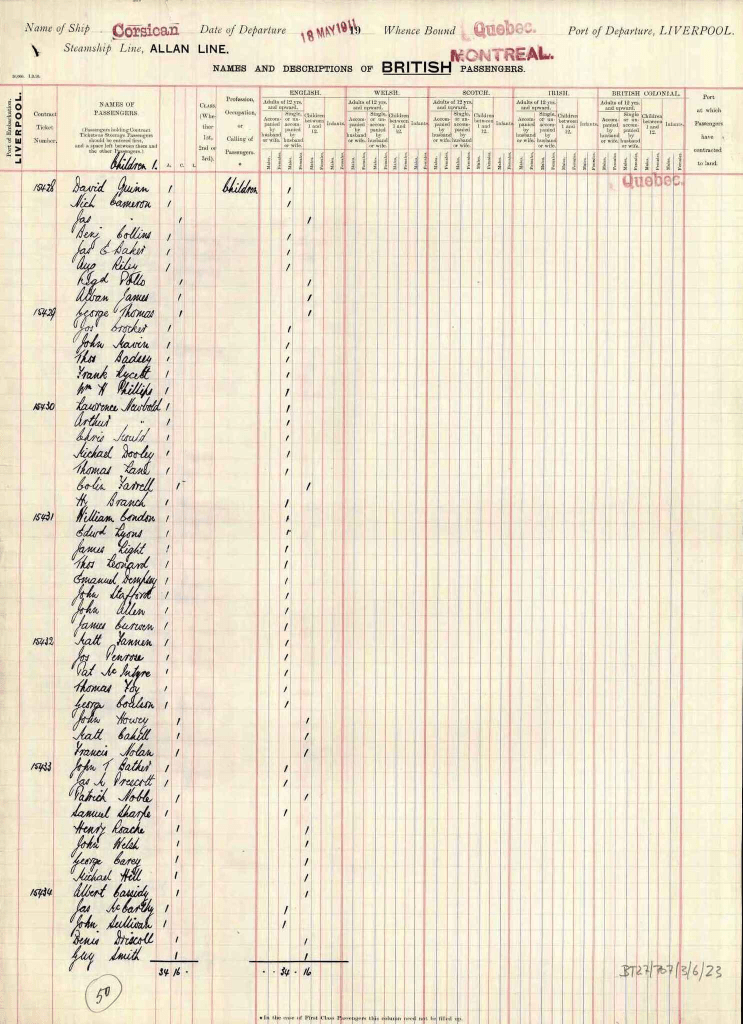 Name of Ship Corsican Date of Departure 18 MAY 1911 19 Whence Bound Quebec. Port of Departure, LIVERPOOL.
Steamship Line, ALLAN LINE. MONTREAL.
NAMES AND DESCRIPTIONS OF BRITISH PASSENGERS.
Port of Embarkation. LIVERPOOL.
Contract Ticket Number.
NAMES OF PASSENGERS.
(Passengers holding Contract Tickets as Steerage Passengers should be entered first, and a space left between them and the other Passengers.)
CLASS. (Whether 1st, 2nd or 3rd).
Profession, Occupation, or Calling of Passengers.
ENGLISH. WELSH. SCOTCH. IRISH. BRITISH COLONIAL.
Adults of 12 yrs. and upward.
Accompanied by husband or wife.
Single, or unaccompanied by husband or wife.
Children between 1 and 12.
Infants.
Males. Females.
Port at which Passengers have contracted to land.
Children 1. A. C. I.
Quebec.
15428 David Quinn 1 Children 1
Nich Cameron 1 1
Jas " 1 1
Benj Collins 1 1
Jas E Baker 1 1
Aug Riley 1 1
Regd 1 1
Alban James 1 1
15429 George Thomas 1 1
Jos Crocker 1 1
John 1 1
Thos Badsey 1 1
Frank Lycett 1 1
Wm H Phillips 1 1
15430 Lawrence Newbold 1 1
Arthur " 1 1
Chris 1 1
Michael Dooley 1 1
Thomas Lane 1 1
Colin Farrell 1 1
Hy Branch 1 1
15431 William Condon 1 1
Edwd Lyons 1 1
James Light 1 1
Thos Leonard 1 1
Emanuel Dempsey 1 1
John Stafford 1 1
John Allen 1 1
James Curwen 1 1
15432 Matt Fannen 1 1
Jos Penrose 1 1
Pat McIntyre 1 1
Thomas Foy 1 1
George Coulson 1 1
John Howey 1 1
Matt Cahill 1 1
Francis Nolan 1 1
15433 John T Bather 1 1
Jas A Prescott 1 1
Patrick Noble 1 1
Samuel Sharpe 1 1
Henry Roache 1 1
John Welsh 1 1
George Carey 1 1
Michael Hill 1 1
15434 Albert Cassidy 1 1
Jas McCarthy 1 1
John Sullivan 1 1
Denis Driscoll 1 1
Guy Smith 1 1
34 16 - - - 34 - 16
50
BT27/707/3/6/23
* In the case of First Class Passengers this column need not be filled up.